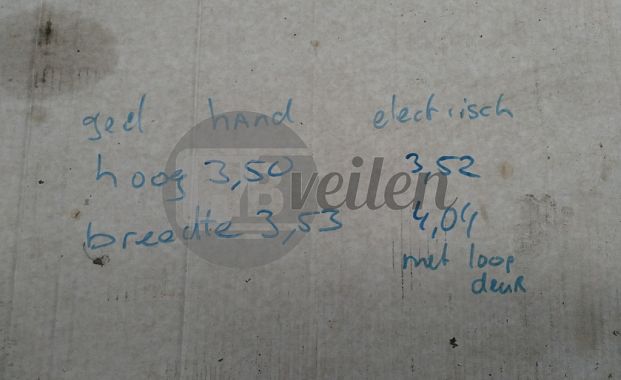 geel hAnd electrisch
hoog 3,50 3,52
breedte 3,53 4,04
met loop
deuR
BVveilen